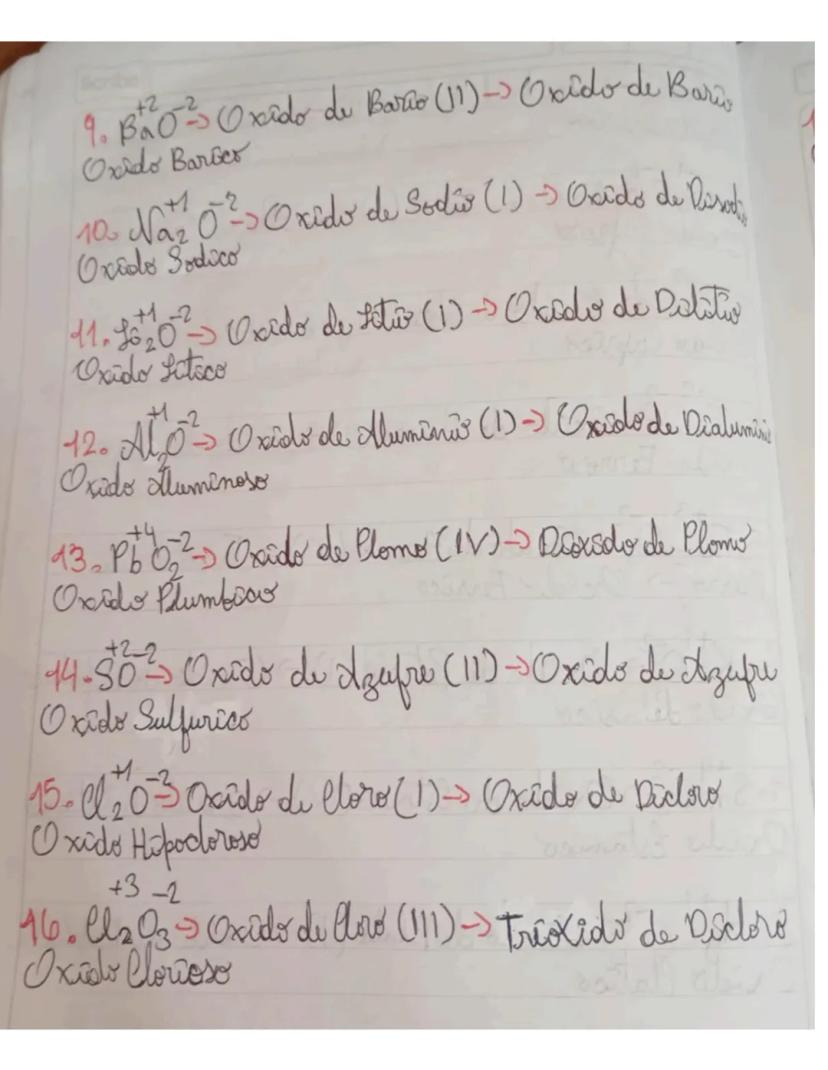 Scribe
9. Ba⁺²O⁻² → Oxido de Bario (II) → Oxido de Bario
Oxido Barico
10. Na₂⁺¹O⁻² → Oxido de Sodio (I) → Oxido de Disodio
Oxido Sodico
11. Li₂⁺¹O⁻² → Oxido de Litio (I) → Oxido de Dilitio
Oxido Litico
12. Al₂⁺¹O⁻² → Oxido de Aluminio (I) → Oxido de Dialuminio
Oxido Aluminoso
13. Pb⁺⁴O₂⁻² → Oxido de Plomo (IV) → Dioxido de Plomo
Oxido Plumbico
14. S⁺²O⁻² → Oxido de Azufre (II) → Oxido de Azufre
Oxido Sulfurico
15. Cl₂⁺¹O⁻² → Oxido de Cloro (I) → Oxido de Dicloro
Oxido Hipocloroso
+3 -2
16. Cl₂O₃ → Oxido de Cloro (III) → Trioxido de Dicloro
Oxido Clorioso